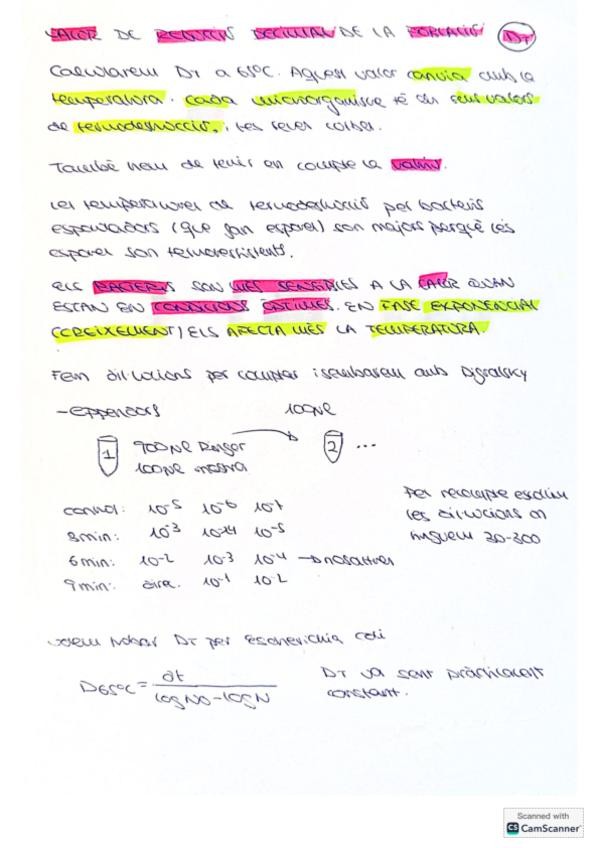 VALOR DE REDUCCIÓ DECIMAL DE LA POBLACIÓ (DT)
Calcularem DT a 65ºC. Aquest valor canvia amb la
temperatura. Cada microorganisme té un seus valors
de termodestrucció, i les seves corbes.
També hem de tenir en compte la
Les temperatures de termodestrucció per bacteris
esporuladors (que fan espores) són majors perquè les
espores són termoresistents.
ELS BACTERIS SÓN MÉS SENSIBLES A LA CALOR QUAN
ESTAN EN CONDICIONS ÒPTIMES. EN FASE EXPONENCIAL
(CREIXEMENT) ELS AFECTA MÉS LA TEMPERATURA.
Fem dilucions per comptar i sembrarem amb Digralsky
-Eppendorfs 100µl
1 900µl Ringer 2 ...
100µl mostra
control: 10-5 10-6 10-7
3min: 10-3 10-4 10-5
6min: 10-2 10-3 10-4 → nosaltres
9min: dire. 10-1 10-2
Per recompte escollim
les dilucions on
hi hagi 30-300
Volem trobar DT per Escherichia coli
D65ºC = ∂t / logN0-logN
DT va sent pràcticament
constant.
Scanned with
CS CamScanner